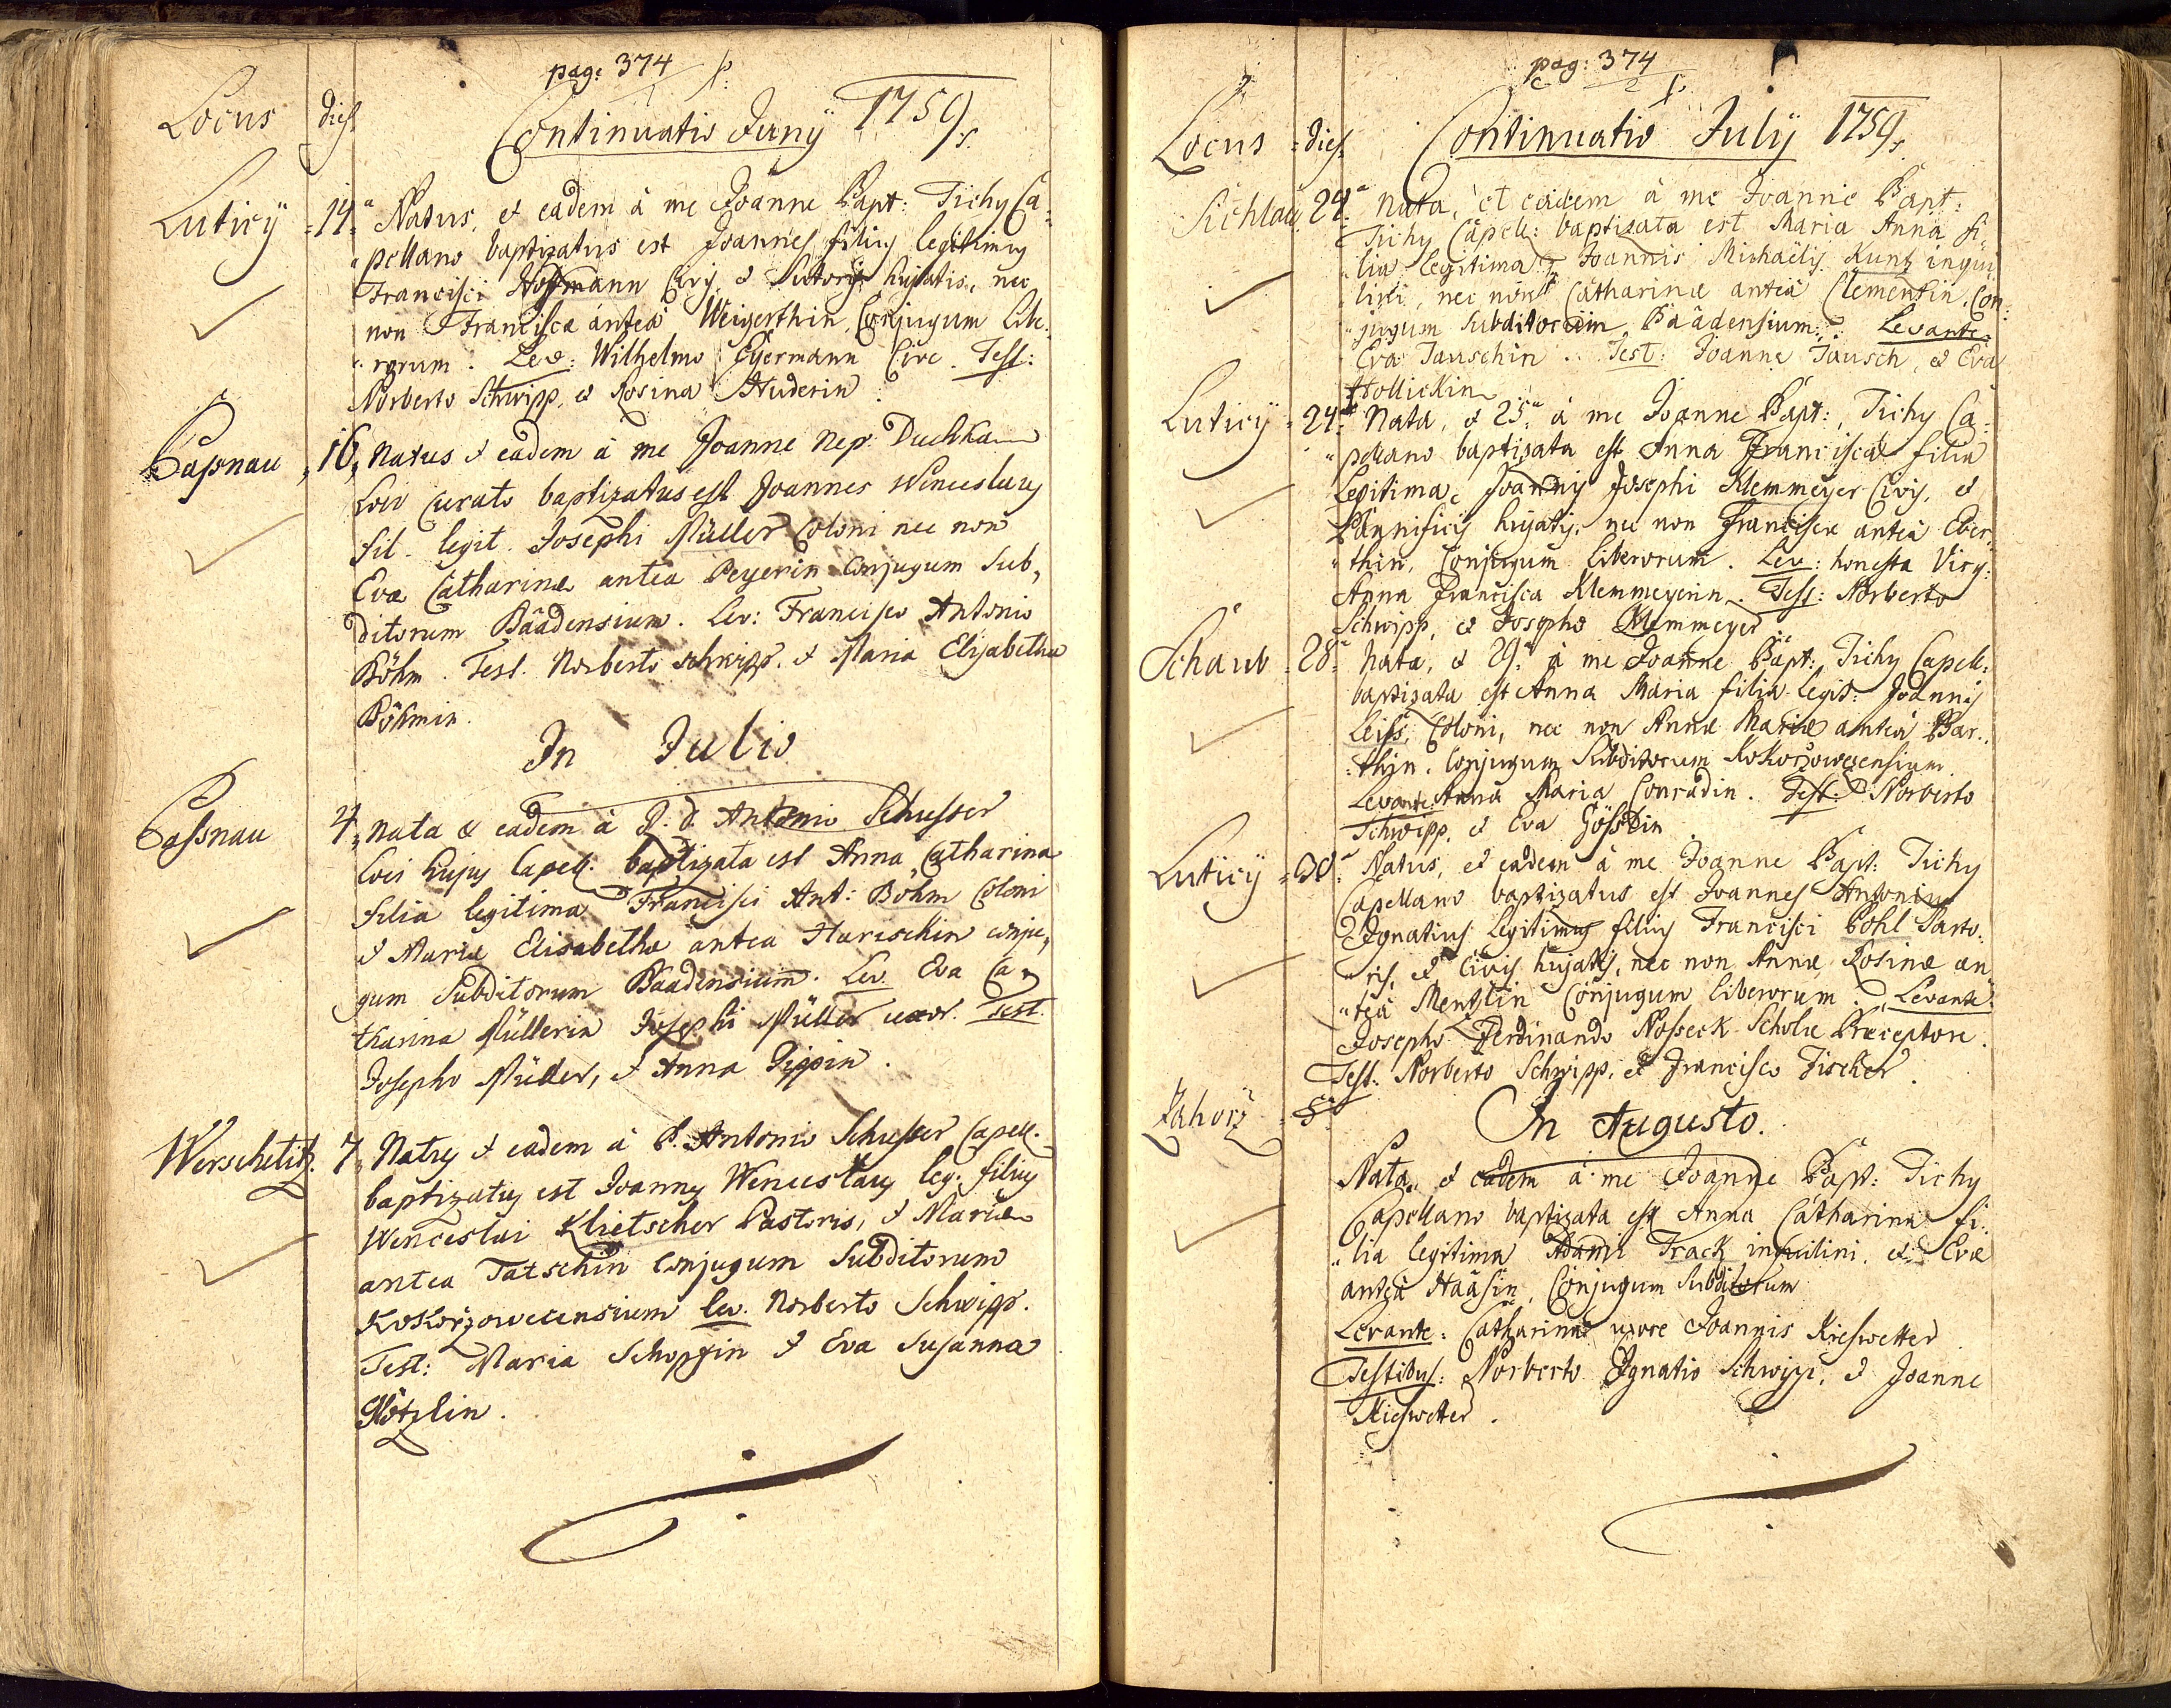 pag: 374
Locus dies Continuatio Juny 1759
Luticÿ 14a Natus, et eadem à me Joanne Bapt: Tichy Ca=
"pellano baptizatus est Joannes filius legitimus
Francisci Hoffmann Civis, et Sutoris hujatis, nec
non Francisca antea Weigerthin, Conjugum Libe=
"rorum. Lev: Wilhelmo Eÿermann Cive. Test:
Norberto Schwipp, et Rosina Huderin.
Passnau 16 Natus et eadem à me Joanne Nep: Duchka
Loci Curato baptizatus est Joannes Wenceslaus
fil. legit. Josephi Müller Coloni nec non
Eva Catharinæ antea Peyerin Conjugum Sub,,
ditorum Bäädensium. Lev: Francisco Antonio
Böhm. Test. Norberto Schwipp. et Maria Elisabetha
Böhmin.
In Julio
Passnau 4 Nata & eadem à P. d. Antonio Schusser
Loci hujus Capell: baptizata est Anna Catharina
filia legitima Francisci Ant: Böhm Coloni
et Mariæ Elisabethæ antea Harischin conju,,
gum Subditorum Baadensium. Lev. Eva Ca=
tharina Müllerin Josephi Müller uxor. Test.
Josepho Müller, et Anna Pippin.
Werschetitz. 7 Natus et eadem à P. Antonio Schusser Capell.
baptizatus est Joannes Wenceslaus leg. filius
Wenceslai Klietscher Pastoris, et Mariæ
antea Tatschin Conjugum Subditorum
Kokorzowecensium Lev. Norberto Schwipp.
Test: Maria Schopfin et Eva Susanna
Götzlin.
pag: 374
2
Locus dies Continuatio Julÿ 1759
Sichlau 24a Nata, et eadem à me Joanne Bapt:
Tichy Capell: baptizata est Maria Anna fi"
"lia legitima Joannis Michaëlis Kuntz inqui
lini, nec non Catharinæ antea Clementin, Con=
"jugum Subditorum Baädensium. Levante
Eva Jauschin. Test: Joanne Jausch, et Eva
Hollickin
Luticÿ 24a Nata, et 25a à me Joanne Bapt: Tichy Ca=
"pellano baptizata est Anna Francisca filia
Legitima Joannis Josephi Klemmeÿer Civis, et
Pannificis hujatis, nec non Francisca antea Eber=
"thin, Conjugum Liberorum. Lev: honesta Virg:
Anna Francisca Klemmeyerin. Test: Norberto
Schwipp, et Josepho Klemmeyer
Schaub 28a Nata, et 29a à me Joanne Bapt: Tichy Capell:
baptizata est Anna Maria filia legit: Joannis
Leiss, Coloni, nec non Annæ Mariæ antea Bar=
"thin. Conjugum Subditorum Kokorzowecensium.
Levante: Anna Maria Conradin. Test: Norberto
Schwipp, et Eva Gösslin.
Luticÿ 30a Natus, et eadem à me Joanne Bapt: Tichy
Capellano baptizatus est Joannes Antonius
Ignatius legitimus filius Francisci Pohl Sarto=
"ris, et Civis hujatis, nec non Annæ Rosinæ an
"tea Mentzlin Conjugum Liberorum. Levante:
Josepho Ferdinando Nosseck Scholæ Præceptore.
Test: Norberto Schwipp, et Francisco Fischer.
Zahorz 5a In Augusto.
Nata, et eadem à me Joanne Bapt: Tichy
Capellano baptizata est Anna Catharina fi=
"lia legitima Adami Track inquilini, et Evæ
antea Haäsin, Conjugum Subditorum
Levante: Catharina uxore Joannis Kieswetter
Testibus: Norberto Ignatio Schwipp, et Joanne
Kieswetter.